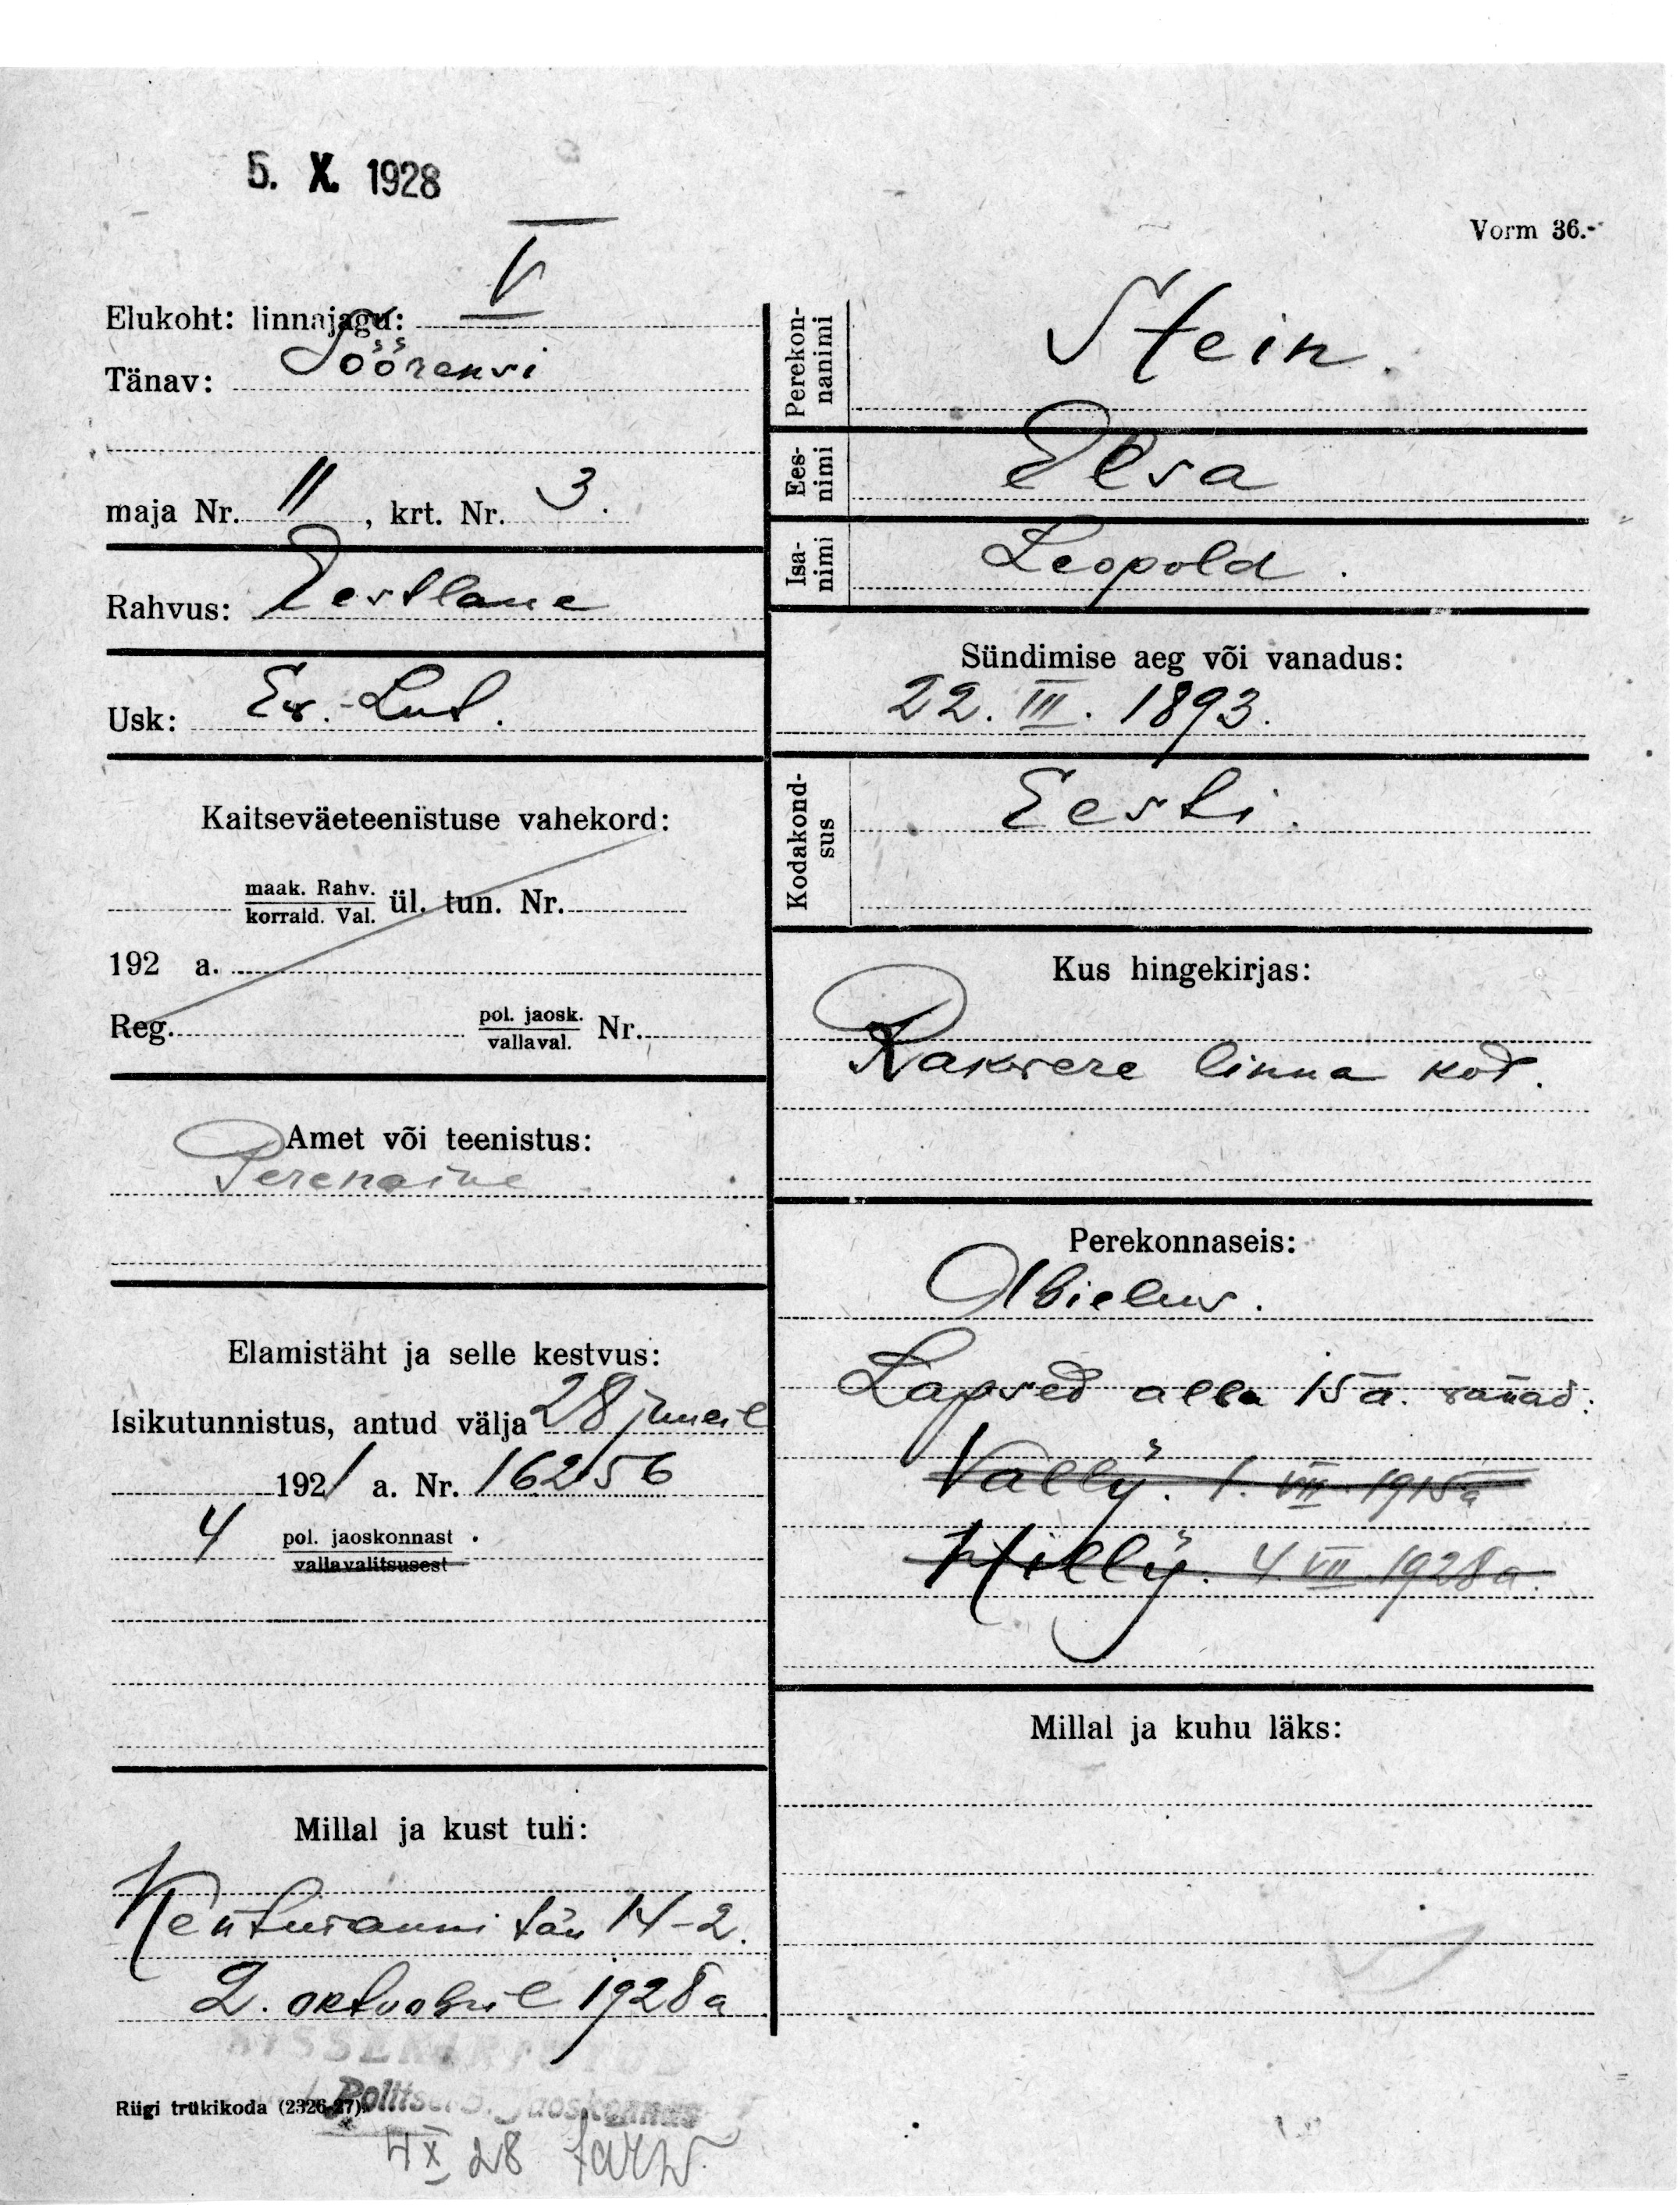 5. X. 1928
Vorm 36.-
Elukoht: linnajagu: V
Tänav: Söörensi
maja Nr. 11, krt. Nr. 3.
Rahvus: Eestlane
Usk: Ev.-Lut.
Kaitseväeteenistuse vahekord:
maak. Rahv.
korrald. Val. ül. tun. Nr.
192 a.
Reg. pol. jaosk.
vallaval. Nr.
Amet või teenistus:
Perenaine
Elamistäht ja selle kestvus:
Isikutunnistus, antud välja 28 juunil
1921 a. Nr. 16256
4 pol. jaoskonnast
vallavalitsusest
Millal ja kust tuli:
tän 14-2.
2. oktoobril 1928 a
Riigi trükikoda (2326-27)
SISSEKIRJUTUD
Politsei 5. Jaoskonnas
4 X 28
Perekon-
nanimi
Stein.
Ees-
nimi
Elsa
Isa-
nimi
Leopold.
Sündimise aeg või vanadus:
22. III. 1893.
Kodakond-
sus
Eesti.
Kus hingekirjas:
Rakvere linna kod.
Perekonnaseis:
Abielus.
Lapsed alla 15 a. vanad:
Vally. 1. VIII 1915 a
Hilly. 4 VII 1928 a.
Millal ja kuhu läks: